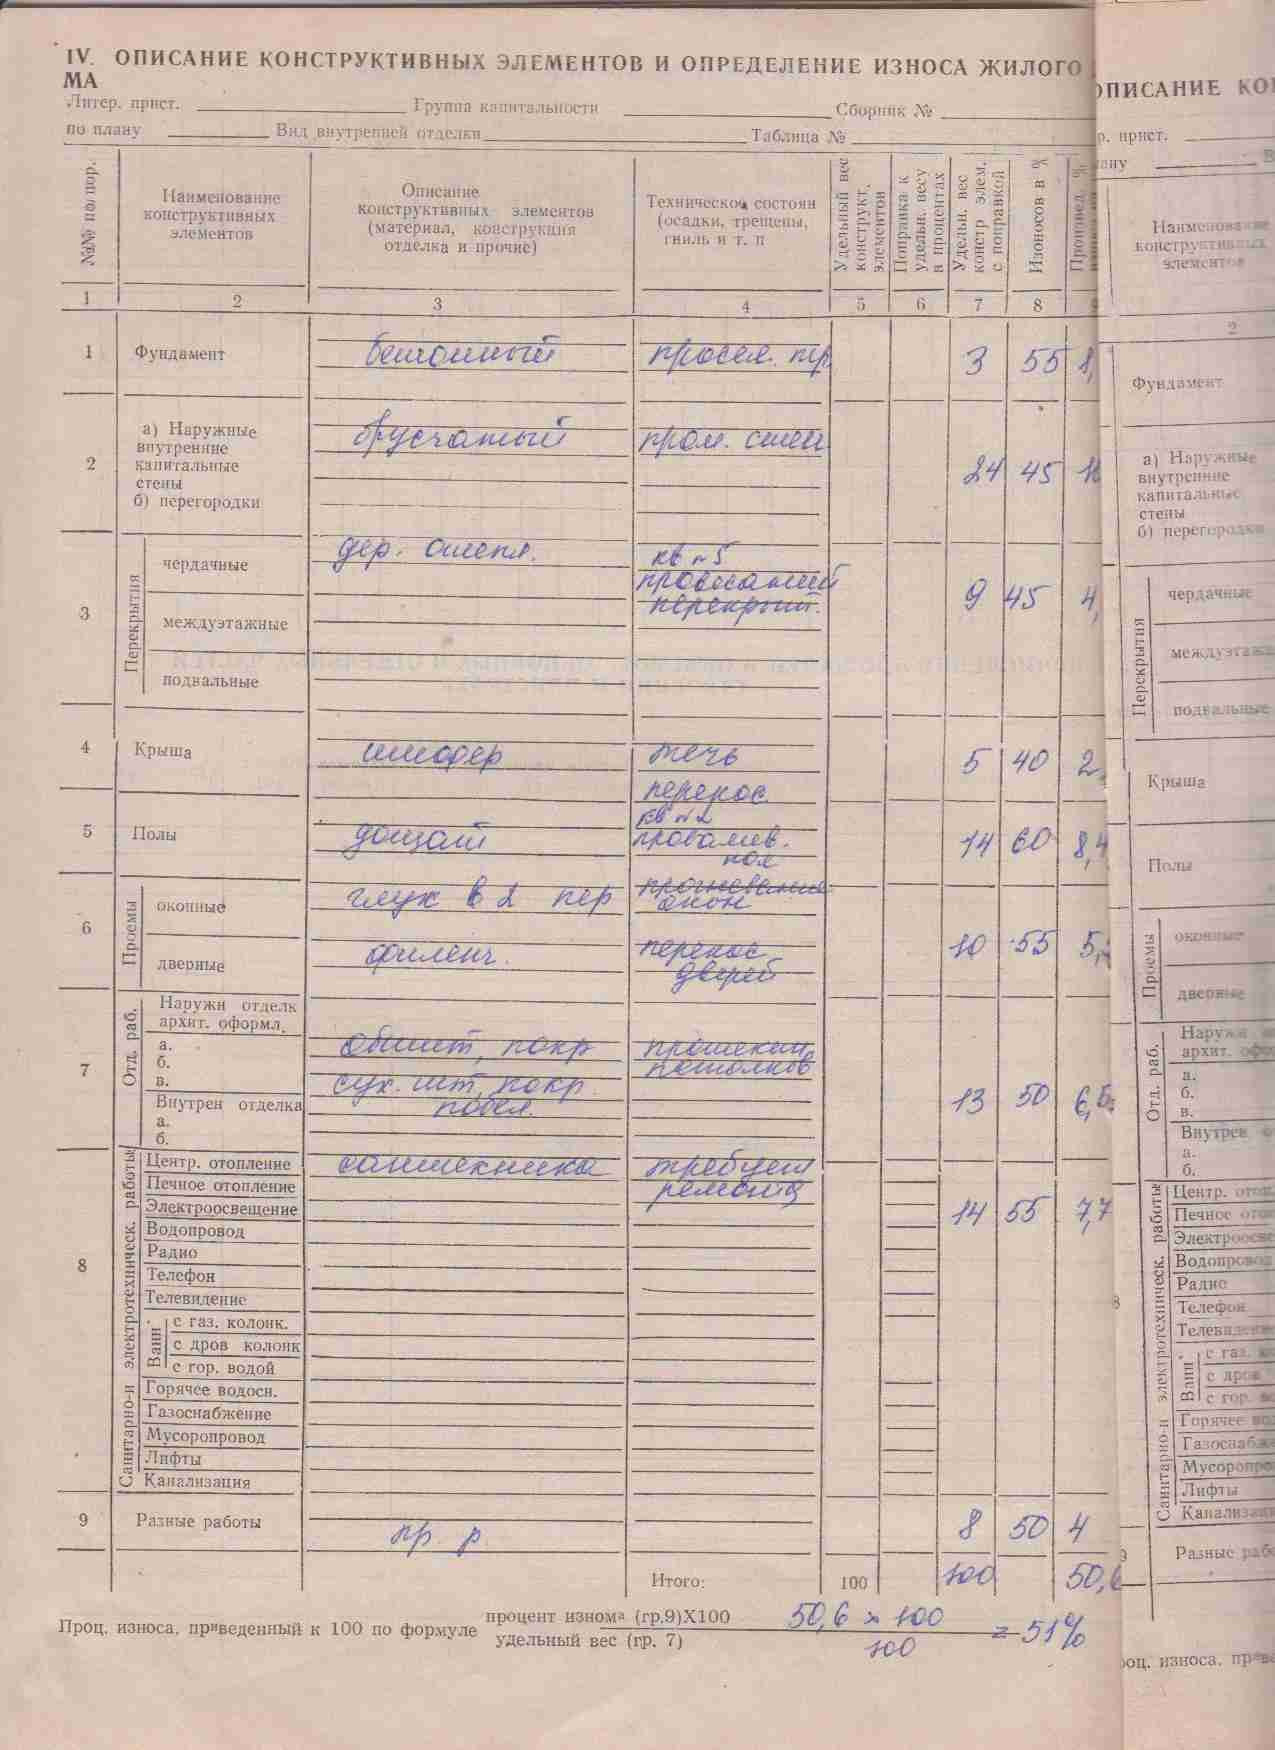 IV. ОПИСАНИЕ КОНСТРУКТИВНЫХ ЭЛЕМЕНТОВ И ОПРЕДЕЛЕНИЕ ИЗНОСА ЖИЛОГО
МА
Литер. прист. Группа капитальности Сборник №
по плану Вид внутренней отделки Таблица №
№№ по/пор.
Наименование
конструктивных
элементов
Описание
конструктивных элементов
(материал, конструкция
отделка и прочие)
Техническое состоян
(осадки, трещены,
гниль и т. п
Удельный вес
конструкт.
элементов
Поправка к
удельн. весу
в процентах
Удельн. вес
констр элем.
с поправкой
Износов в %
Произвед. %
1 2 3 4 5 6 7 8
1 Фундамент бетонный просел. 3 55
2
а) Наружные
внутренние
капитальные
стены
б) перегородки
брусчатый пром. стен 24 45
3 Перекрытия
чердачные дер. отепл. кв №5
провисаний
перекрыт. 9 45 4,
междуэтажные
подвальные
4 Крыша шифер течь 5 40 2,
перекос
5 Полы дощат кв №2
провалив.
пол 14 60 8,4
6 Проемы
оконные глух в 2 пер прогнивание
окон
10 55 5,
дверные филенч. перекос
дверей
7 Отд. раб.
Наружн отделк
архит. оформл.
а. обшит, покр протекан
б. потолков
в. сух. шт, покр.
Внутрен отделка побел. 13 50 6,5
а.
б.
8 Санитарно-и электротехническ. работы
Центр. отопление сантехника требует
Печное отопление ремонта
Электроосвещение 14 55 7,7
Водопровод
Радио
Телефон
Телевидение
Ванн
с газ. колонк.
с дров колонк
с гор. водой
Горячее водосн.
Газоснабжение
Мусоропровод
Лифты
Канализация
9 Разные работы пр. р. 8 50 4
Итого: 100 100 50,6
Проц. износа, приведенный к 100 по формуле
процент изнома (гр.9)Х100
удельный вес (гр. 7)
50,6 × 100
100
= 51%
ОПИСАНИЕ КО
р. прист.
ану
Наименование
конструктивных
элементов
2
Фундамент
а) Наружные
внутренние
капитальные
стены
б) перегородки
Перекрытия
чердачные
междуэтажн
подвальные
Крыша
Полы
Проемы
оконные
дверные
Отд. раб.
Наружн
архит. офо
а.
б.
в.
Внутрен
а.
б.
Санитарно-и электротехническ. работы
Центр. отоп
Печное ото
Электроосве
Водопровод
Радио
Телефон
Телевидени
Ванн
с газ. к
с дров
с гор. в
Горячее во
Газоснабж
Мусоропро
Лифты
Канализаци
Разные раб
роц. износа, приве